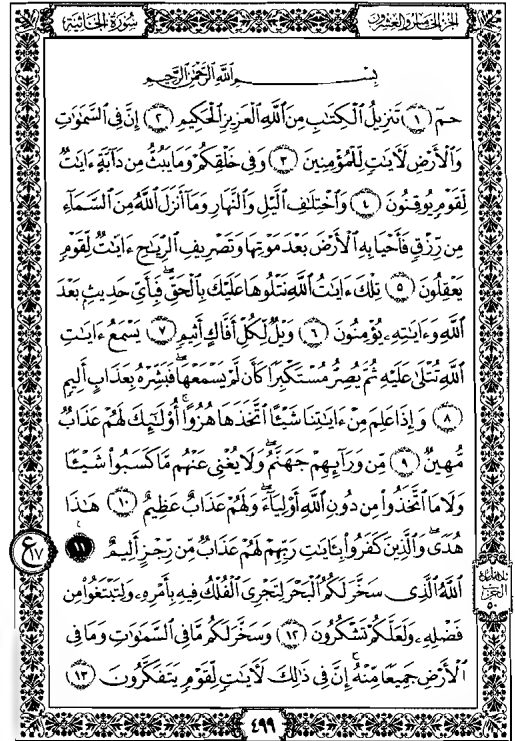 الجزء الخامس والعشرون
سورة الجاثية
بِسْمِ اللَّهِ الرَّحْمَٰنِ الرَّحِيمِ
حمٓ ﴿١﴾ تَنزِيلُ ٱلْكِتَٰبِ مِنَ ٱللَّهِ ٱلْعَزِيزِ ٱلْحَكِيمِ ﴿٢﴾ إِنَّ فِى ٱلسَّمَٰوَٰتِ
وَٱلْأَرْضِ لَءَايَٰتٍ لِّلْمُؤْمِنِينَ ﴿٣﴾ وَفِى خَلْقِكُمْ وَمَا يَبُثُّ مِن دَآبَّةٍ ءَايَٰتٌ
لِّقَوْمٍ يُوقِنُونَ ﴿٤﴾ وَٱخْتِلَٰفِ ٱلَّيْلِ وَٱلنَّهَارِ وَمَآ أَنزَلَ ٱللَّهُ مِنَ ٱلسَّمَآءِ
مِن رِّزْقٍ فَأَحْيَا بِهِ ٱلْأَرْضَ بَعْدَ مَوْتِهَا وَتَصْرِيفِ ٱلرِّيَٰحِ ءَايَٰتٌ لِّقَوْمٍ
يَعْقِلُونَ ﴿٥﴾ تِلْكَ ءَايَٰتُ ٱللَّهِ نَتْلُوهَا عَلَيْكَ بِٱلْحَقِّ ۖ فَبِأَىِّ حَدِيثٍۭ بَعْدَ
ٱللَّهِ وَءَايَٰتِهِۦ يُؤْمِنُونَ ﴿٦﴾ وَيْلٌ لِّكُلِّ أَفَّاكٍ أَثِيمٍ ﴿٧﴾ يَسْمَعُ ءَايَٰتِ
ٱللَّهِ تُتْلَىٰ عَلَيْهِ ثُمَّ يُصِرُّ مُسْتَكْبِرًا كَأَن لَّمْ يَسْمَعْهَا ۖ فَبَشِّرْهُ بِعَذَابٍ أَلِيمٍ
﴿٨﴾ وَإِذَا عَلِمَ مِنْ ءَايَٰتِنَا شَيْـًٔا ٱتَّخَذَهَا هُزُوًا ۚ أُو۟لَٰٓئِكَ لَهُمْ عَذَابٌ
مُّهِينٌ ﴿٩﴾ مِّن وَرَآئِهِمْ جَهَنَّمُ ۖ وَلَا يُغْنِى عَنْهُم مَّا كَسَبُوا۟ شَيْـًٔا
وَلَا مَا ٱتَّخَذُوا۟ مِن دُونِ ٱللَّهِ أَوْلِيَآءَ ۖ وَلَهُمْ عَذَابٌ عَظِيمٌ ﴿١٠﴾ هَٰذَا
هُدًى ۖ وَٱلَّذِينَ كَفَرُوا۟ بِـَٔايَٰتِ رَبِّهِمْ لَهُمْ عَذَابٌ مِّن رِّجْزٍ أَلِيمٌ ﴿١١﴾
ع ١٧
ٱللَّهُ ٱلَّذِى سَخَّرَ لَكُمُ ٱلْبَحْرَ لِتَجْرِىَ ٱلْفُلْكُ فِيهِ بِأَمْرِهِۦ وَلِتَبْتَغُوا۟ مِن
فَضْلِهِۦ وَلَعَلَّكُمْ تَشْكُرُونَ ﴿١٢﴾ وَسَخَّرَ لَكُم مَّا فِى ٱلسَّمَٰوَٰتِ وَمَا فِى
ٱلْأَرْضِ جَمِيعًا مِّنْهُ ۚ إِنَّ فِى ذَٰلِكَ لَءَايَٰتٍ لِّقَوْمٍ يَتَفَكَّرُونَ ﴿١٣﴾
الحزب
٥٠
٤٩٩